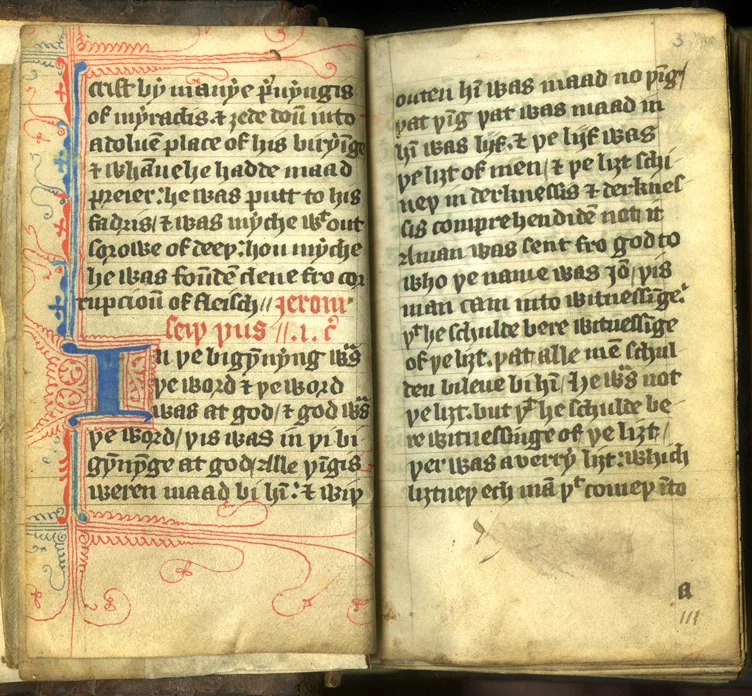 crist bẏ manẏe p̃uẏngis
of mẏraclis ⁊ ȝede doū into
a doluē place of his birẏīge
⁊ whāne he hadde maad
preier: he was putt to his
fadris/ ⁊ was mẏche wᵗout
sorowe of deeþ: hou mẏche
he was foūdē clene fro cor
rupcioū of fleisch// jerom
seiþ þus //.1. c̃
In þe bigẏnẏng wᵃs
þe word ⁊ þe word
was at god/ ⁊ god wᵃs
þe word/ þis was in þi bi
gẏnẏge at god/ Alle þīgis
weren maad bi hī: ⁊ wiþ
3
outen hī was maad no þīg/
þat þīg þat was maad in
hī was lijf. ⁊ þe lijf was
þe liȝt of men/ ⁊ þe liȝt schi
neþ in derknessis ⁊ derknes
sis comprehendidē not it
A man was sent fro god to
who þe name was Jō/ þis
man cam into witnessīge:
þᵗ he schulde bere witnessīge
of þe liȝt. þat alle mē schul
den bileue bi hī/ he wᵃs not
þe liȝt. but þᵗ he schulde be
re witnessinge of þe liȝt/
þer was a verrẏ liȝt: which
liȝtneþ ech mā þᵗ comeþ īto
a
111